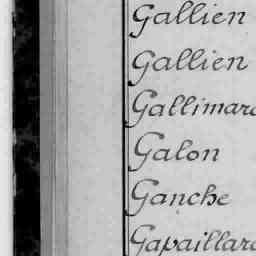 Gallien
Gallien
Gallimard
Galon
Ganche
Gapaillard